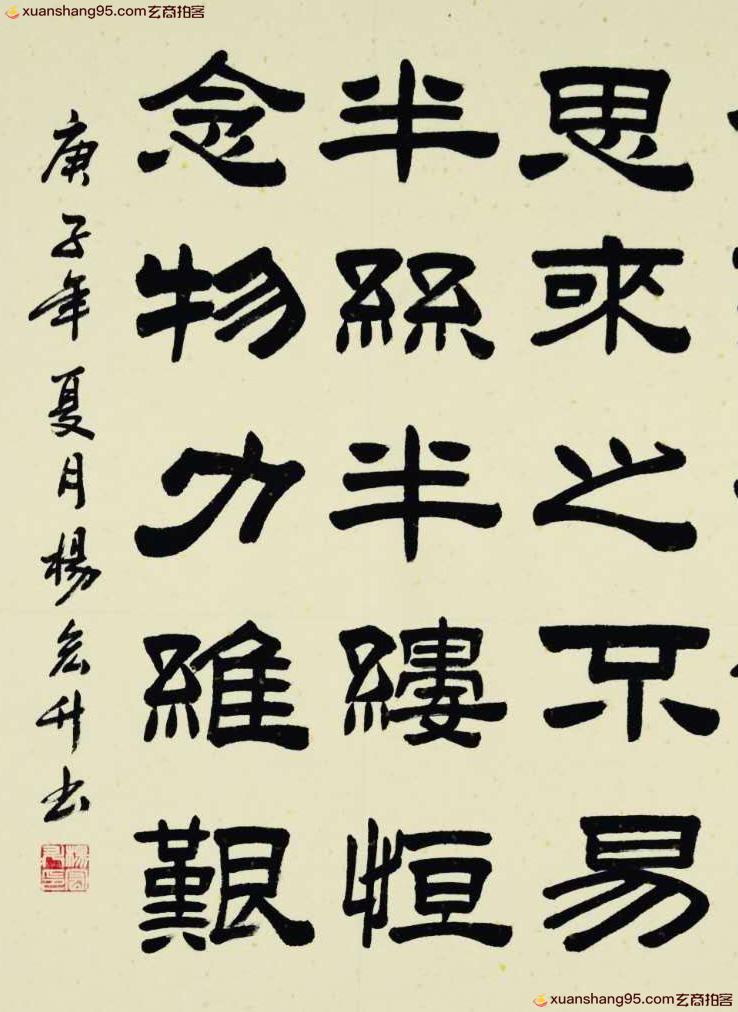 xuanshang95.com玄商拍客
思來之不易
半絲半縷恒
念物力維艱
庚子年夏月楊宏升书
xuanshang95.com玄商拍客